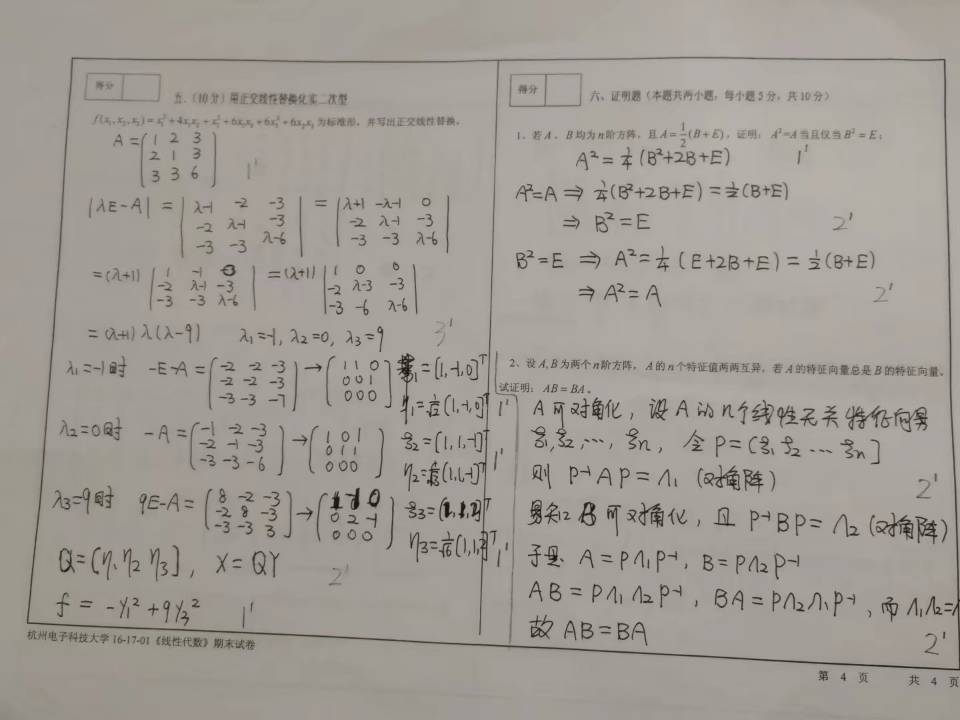 得分
五、(10分)用正交线性替换化实二次型
f(x₁,x₂,x₃)=x₁²+4x₁x₂+x₂²+6x₁x₃+6x₃²+6x₂x₃为标准形，并写出正交线性替换。
A = (1 2 3
2 1 3
3 3 6) 1'
|λE-A| = |λ-1 -2 -3
-2 λ-1 -3
-3 -3 λ-6| = |λ+1 -λ-1 0
-2 λ-1 -3
-3 -3 λ-6|
=(λ+1) |1 -1 0
-2 λ-1 -3
-3 -3 λ-6| =(λ+1) |1 0 0
-2 λ-3 -3
-3 -6 λ-6|
=(λ+1)λ(λ-9) λ₁=-1, λ₂=0, λ₃=9 3'
λ₁=-1时 -E-A=(-2 -2 -3
-2 -2 -3
-3 -3 -7) → (1 1 0
0 0 1
0 0 0) ξ₁=[1,-1,0]ᵀ
η₁=1/√2[1,-1,0]ᵀ 1'
λ₂=0时 -A=(-1 -2 -3
-2 -1 -3
-3 -3 -6) → (1 0 1
0 1 1
0 0 0) ξ₂=[1,1,-1]ᵀ
η₂=1/√3[1,1,-1]ᵀ 1'
λ₃=9时 9E-A=(8 -2 -3
-2 8 -3
-3 -3 3) → (1 -1 0
0 2 -1
0 0 0) ξ₃=[1,1,2]ᵀ
η₃=1/√6[1,1,2]ᵀ 1'
Q=[η₁ η₂ η₃], X=QY 2'
f = -y₁²+9y₃² 1'
杭州电子科技大学16-17-01《线性代数》期末试卷
得分
六、证明题（本题共两小题，每小题5分，共10分）
1、若A、B均为n阶方阵，且A=1/2(B+E)，证明：A²=A当且仅当B²=E；
A²=1/4(B²+2B+E) 1'
A²=A ⇒ 1/4(B²+2B+E)=1/2(B+E)
⇒ B²=E 2'
B²=E ⇒ A²=1/4(E+2B+E)=1/2(B+E)
⇒ A²=A 2'
2、设A,B为两个n阶方阵，A的n个特征值两两互异，若A的特征向量总是B的特征向量，
试证明：AB=BA。
A可对角化，设A的n个线性无关特征向量
ξ₁,ξ₂,…,ξn，令P=[ξ₁ ξ₂ … ξn]
则P⁻¹AP=Λ₁(对角阵) 2'
易知B可对角化，且P⁻¹BP=Λ₂(对角阵)
于是A=PΛ₁P⁻¹, B=PΛ₂P⁻¹
AB=PΛ₁Λ₂P⁻¹, BA=PΛ₂Λ₁P⁻¹, 而Λ₁Λ₂=
故AB=BA 2'
第 4 页 共 4 页